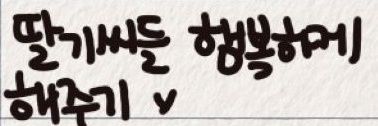 딸기씨들 행복하게
해주기 v